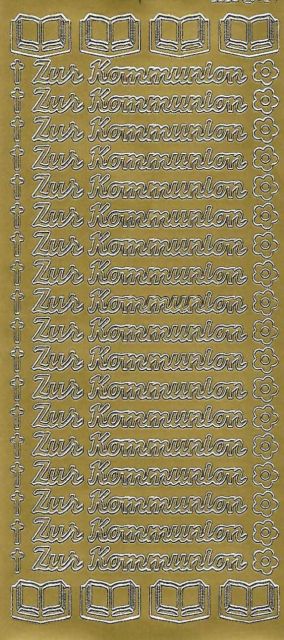 Zur Kommunion
Zur Kommunion
Zur Kommunion
Zur Kommunion
Zur Kommunion
Zur Kommunion
Zur Kommunion
Zur Kommunion
Zur Kommunion
Zur Kommunion
Zur Kommunion
Zur Kommunion
Zur Kommunion
Zur Kommunion
Zur Kommunion
Zur Kommunion
Zur Kommunion
Zur Kommunion